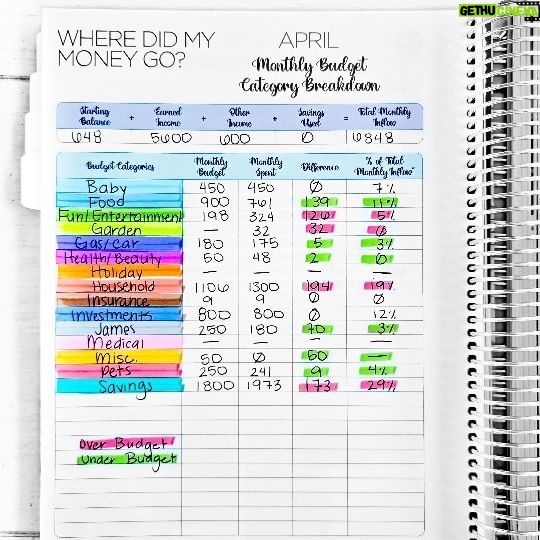 GETHU CINEMA
WHERE DID MY MONEY GO?
APRIL
Monthly Budget
Category Breakdown
Starting Balance + Earned Income + Other Income + Savings Used = Total Monthly Inflow
648 5600 600 0 6848
Budget Categories Monthly Budget Monthly Spent Difference % of Total Monthly Inflow*
Baby 450 450 Ø 7%
Food 900 761 139 11%
Fun/Entertainment 198 324 126 5%
Garden — 32 32 Ø
Gas/car 180 175 5 3%
Health/Beauty 50 48 2 Ø
Holiday — — — —
Household 1106 1300 194 19%
Insurance 9 9 Ø Ø
Investments 800 800 Ø 12%
James 250 180 70 3%
Medical — — — —
Misc. 50 Ø 50 —
Pets 250 241 9 4%
Savings 1800 1973 173 29%
Over Budget
Under Budget